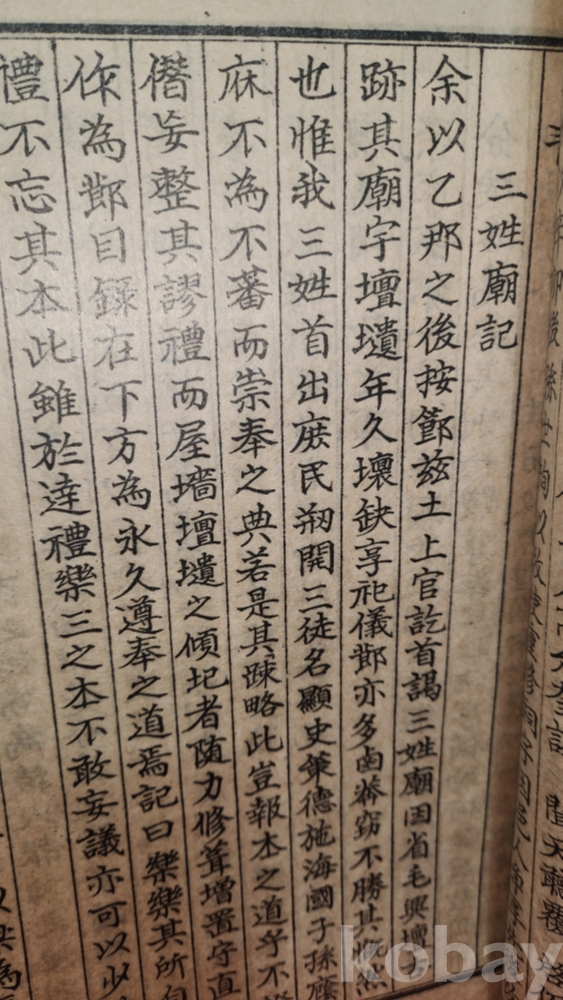 三姓廟記
余以乙那之後按節玆土上官訖首謁三姓廟因省毛興壇
跡其廟宇壇壝年久壞缺享祀儀節亦多鹵莽竊不勝其慨然
也惟我三姓首出庶民刱開三徒名顯史策德施海國子孫蔭
庥不為不蕃而崇奉之典若是其踈略此豈報本之道乎不
僭妄整其謬禮而屋墻壇壝之傾圮者随力修葺增置守直
作為節目錄在下方為永久遵奉之道焉記曰樂樂其所自
禮不忘其本此雖於達禮樂三之本不敢妄議亦可以少
kobay